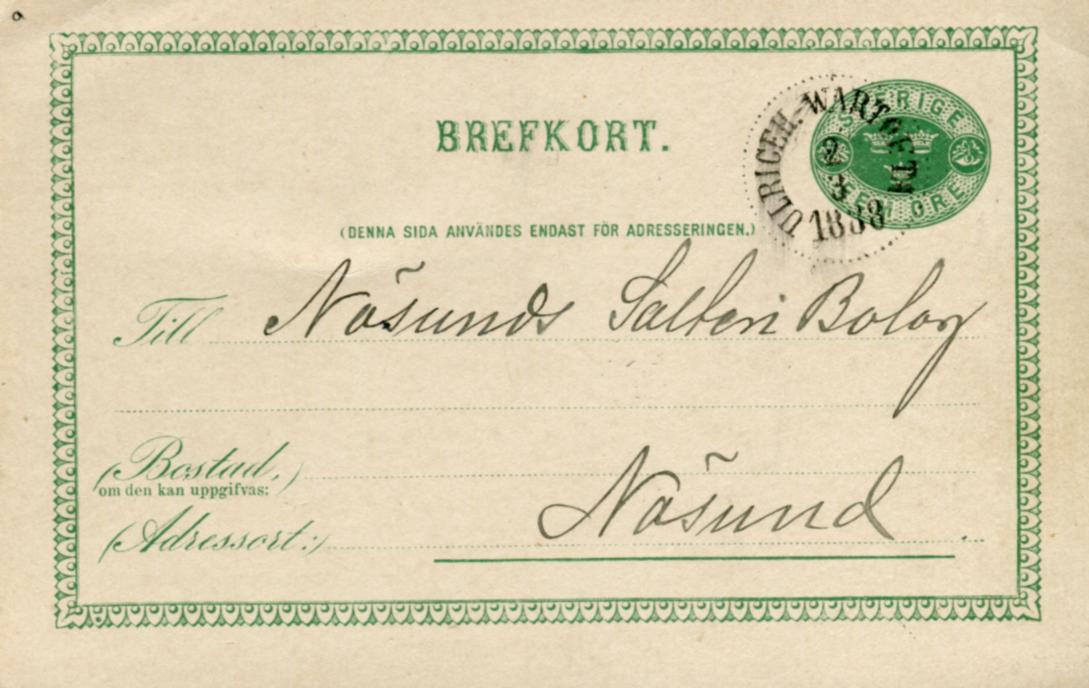 BREFKORT.
SVERIGE
FEM ÖRE
ULRICEH.-WARTOFTA
2
3
1888
(DENNA SIDA ANVÄNDES ENDAST FÖR ADRESSERINGEN.)
Till Nösunds Salteri Bolag
(Bostad,)
om den kan uppgifvas:
Nösund
(Adressort:)